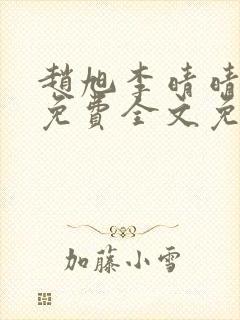 趙旭李晴晴
免費全文免
加藤小雪